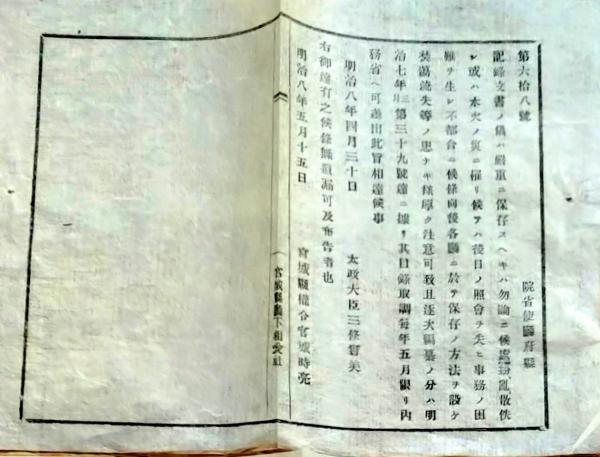 第六拾八號
院省使廳府縣
記錄文書ノ儀ハ嚴重ニ保存スヘキハ勿論ニ候處紛亂散佚
シ或ハ水火ノ災ニ罹リ候テハ後日ノ照會ヲ失ヒ事務ノ困
難ヲ生シ不都合ニ候條向後各廳ニ於テ保存ノ方法ヲ設ケ
焚蕩流失等ノ患ナキ樣厚ク注意可致且逐次編纂ノ分ハ明
治七年 第三十九號達ニ據リ其目錄取調每年五月限リ內
務省ヘ可差出此旨相達候事
明治八年四月三十日
太政大臣三條實美
右御達有之候條 遺漏可及布告者也
明治八年五月十五日
宮城縣權令宮城時亮
宮城縣廳下相愛社